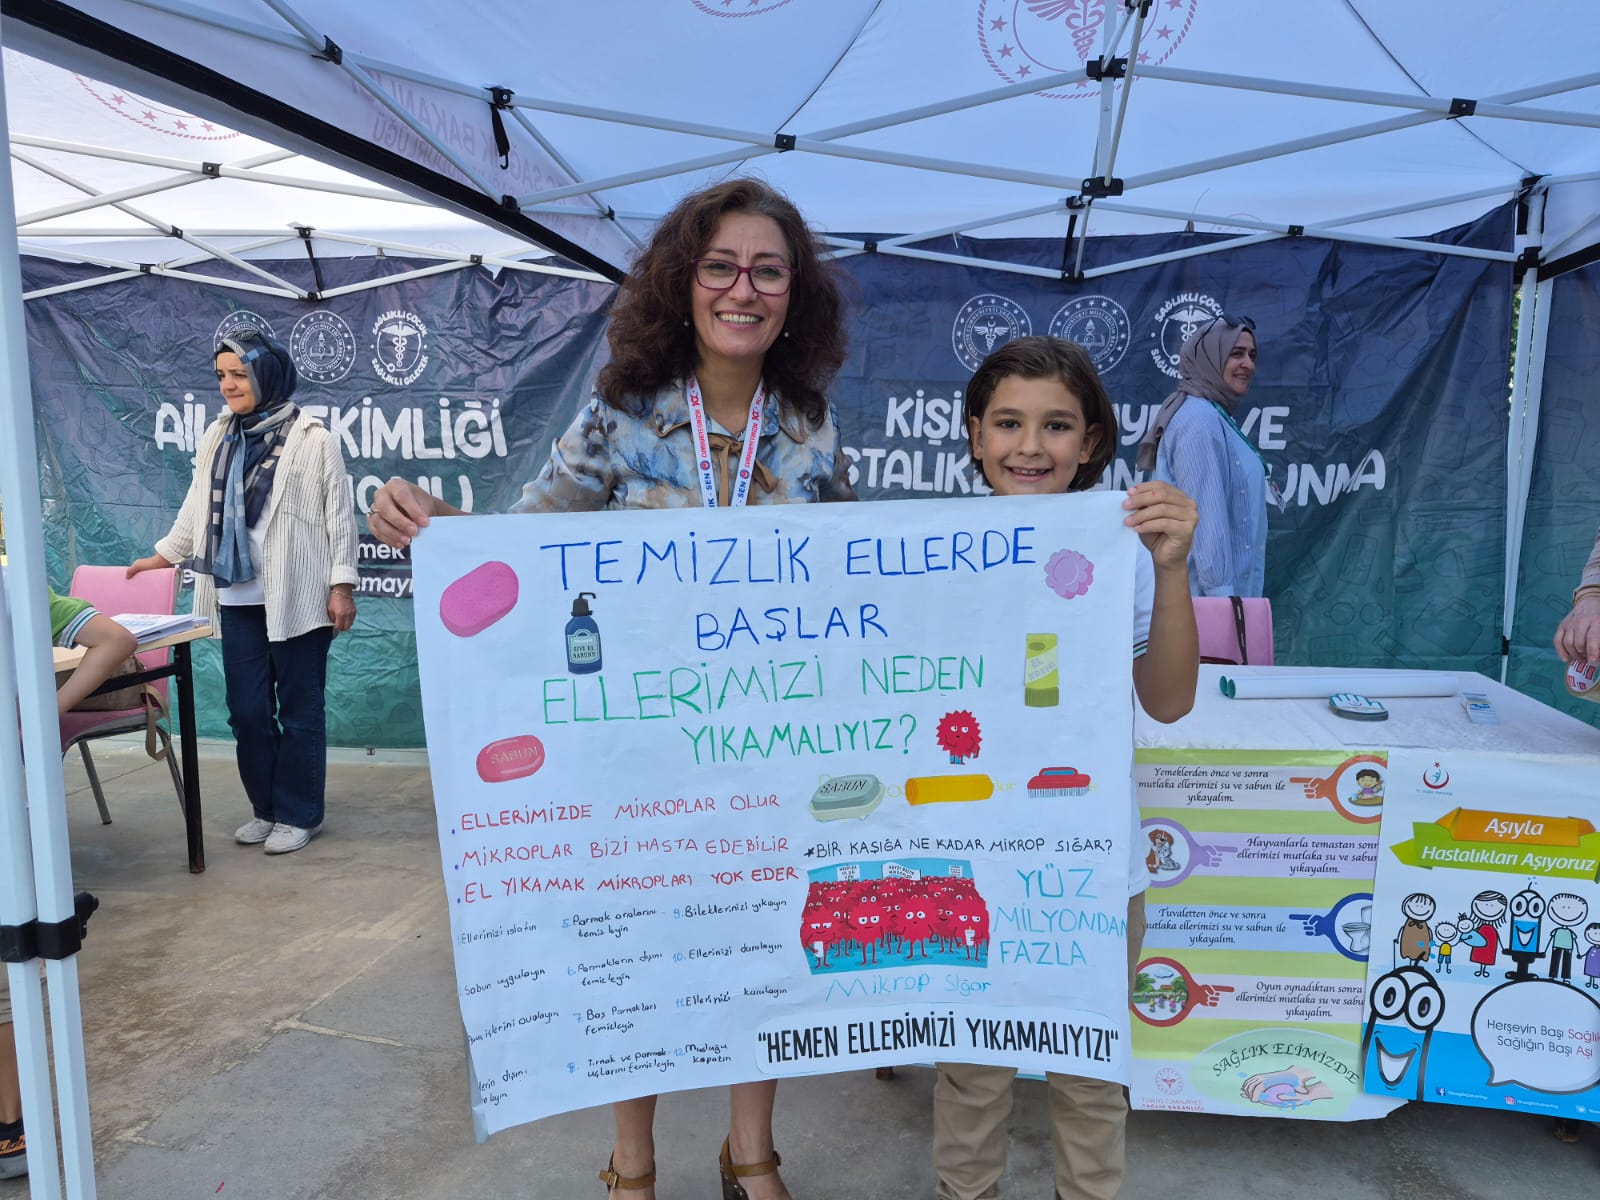 TEMİZLİK ELLERDE
BAŞLAR
ELLERİMİZİ NEDEN
YIKAMALIYIZ?
SIVI EL
SABUNU
EL
KREMİ
SABUN
SABUN
. ELLERİMİZDE MİKROPLAR OLUR
. MİKROPLAR BİZİ HASTA EDEBİLİR
. EL YIKAMAK MİKROPLARI YOK EDER
Ellerinizi ıslatın
Sabun uygulayın
5. Parmak aralarını
temizleyin
6. Parmakların dışını
temizleyin
7. Baş Parmakları
temizleyin
8. Tırnak ve parmak
uçlarını temizleyin
9. Bileklerinizi yıkayın
10. Ellerinizi durulayın
11. Ellerinizi kurulayın
12. Musluğu
kapatın
*BİR KAŞIĞA NE KADAR MİKROP SIĞAR?
YÜZ
MİLYONDAN
FAZLA
MİKROP SIĞAR
"HEMEN ELLERİMİZİ YIKAMALIYIZ!"
KİMLİĞİ
SAĞLIKLI ÇOCUK
SAĞLIKLI GELECEK
KİŞİ
VE
SAĞLIKLI ÇOCUK
Yemeklerden önce ve sonra
mutlaka ellerimizi su ve sabun ile
yıkayalım.
Hayvanlarla temastan sonra
ellerimizi mutlaka su ve sabun
yıkayalım.
Tuvaletten önce ve sonra
mutlaka ellerimizi su ve sabun ile
yıkayalım.
Oyun oynadıktan sonra
ellerimizi mutlaka su ve sabun
yıkayalım.
SAĞLIK ELİMİZDE
TÜRKİYE CUMHURİYETİ
SAĞLIK BAKANLIĞI
Aşıyla
Hastalıkları Aşıyoruz
Herşeyin Başı Sağlık
Sağlığın Başı Aşı